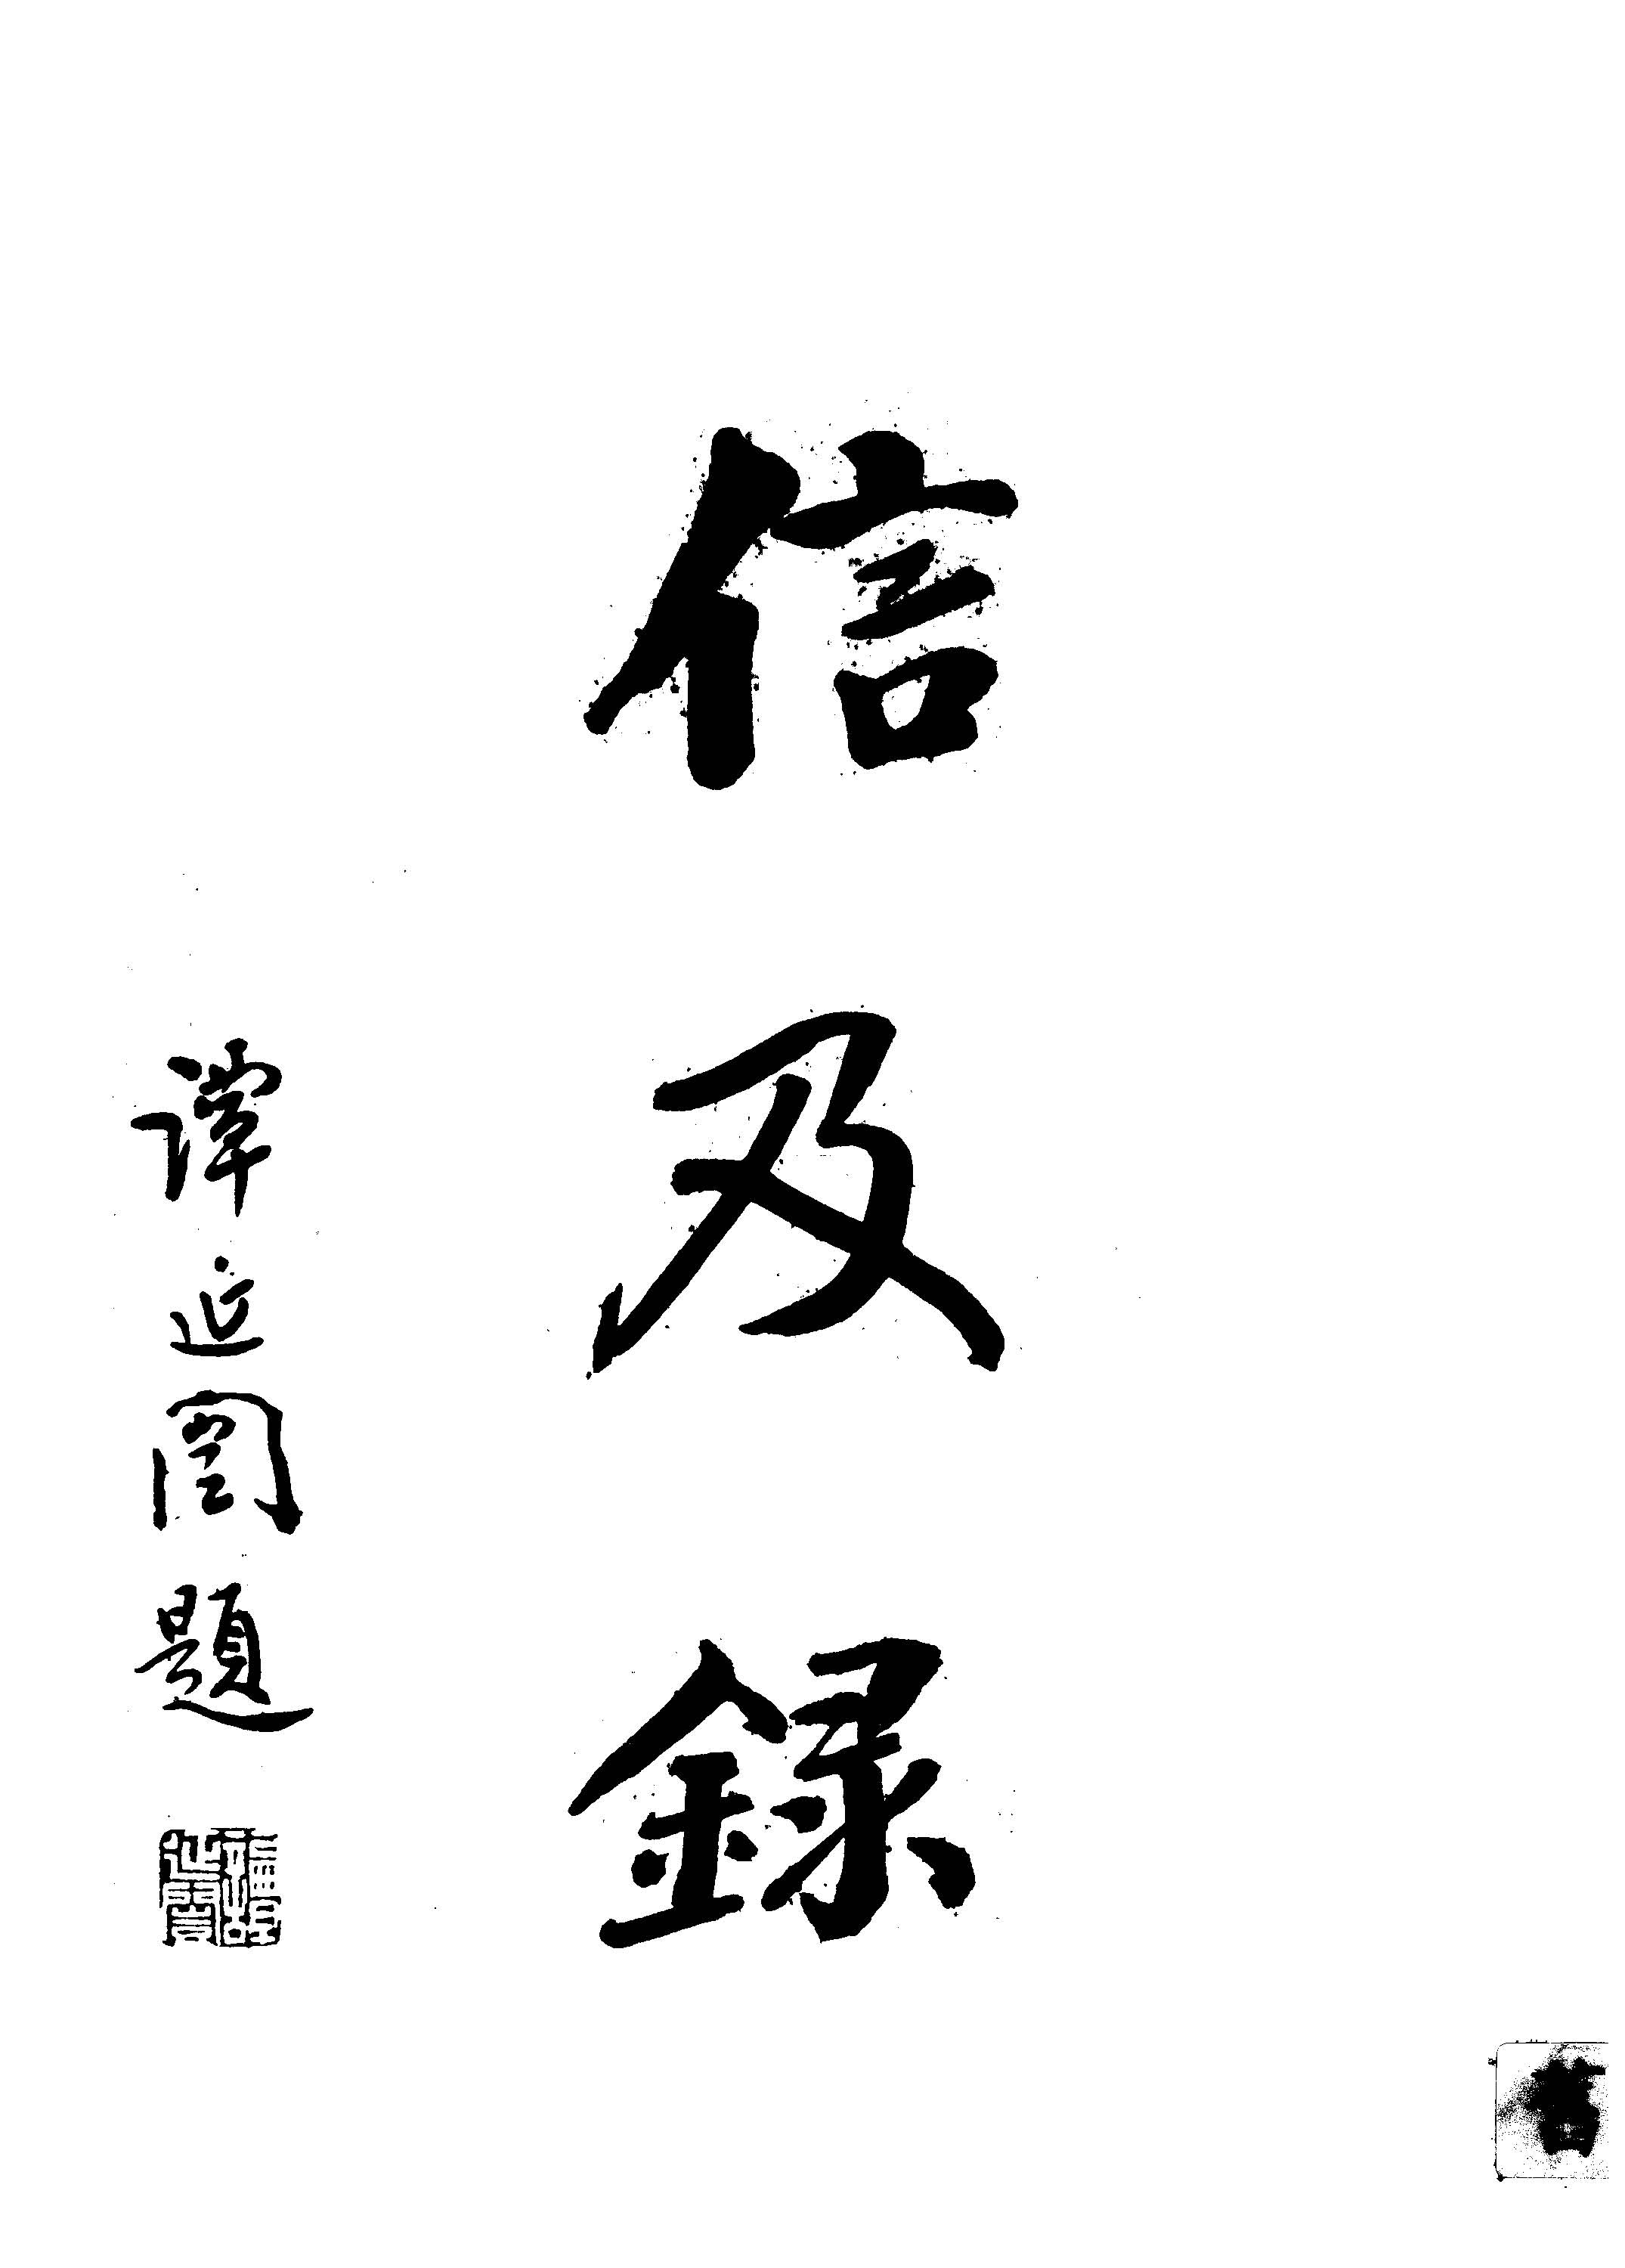 信及錄
譚延闓題